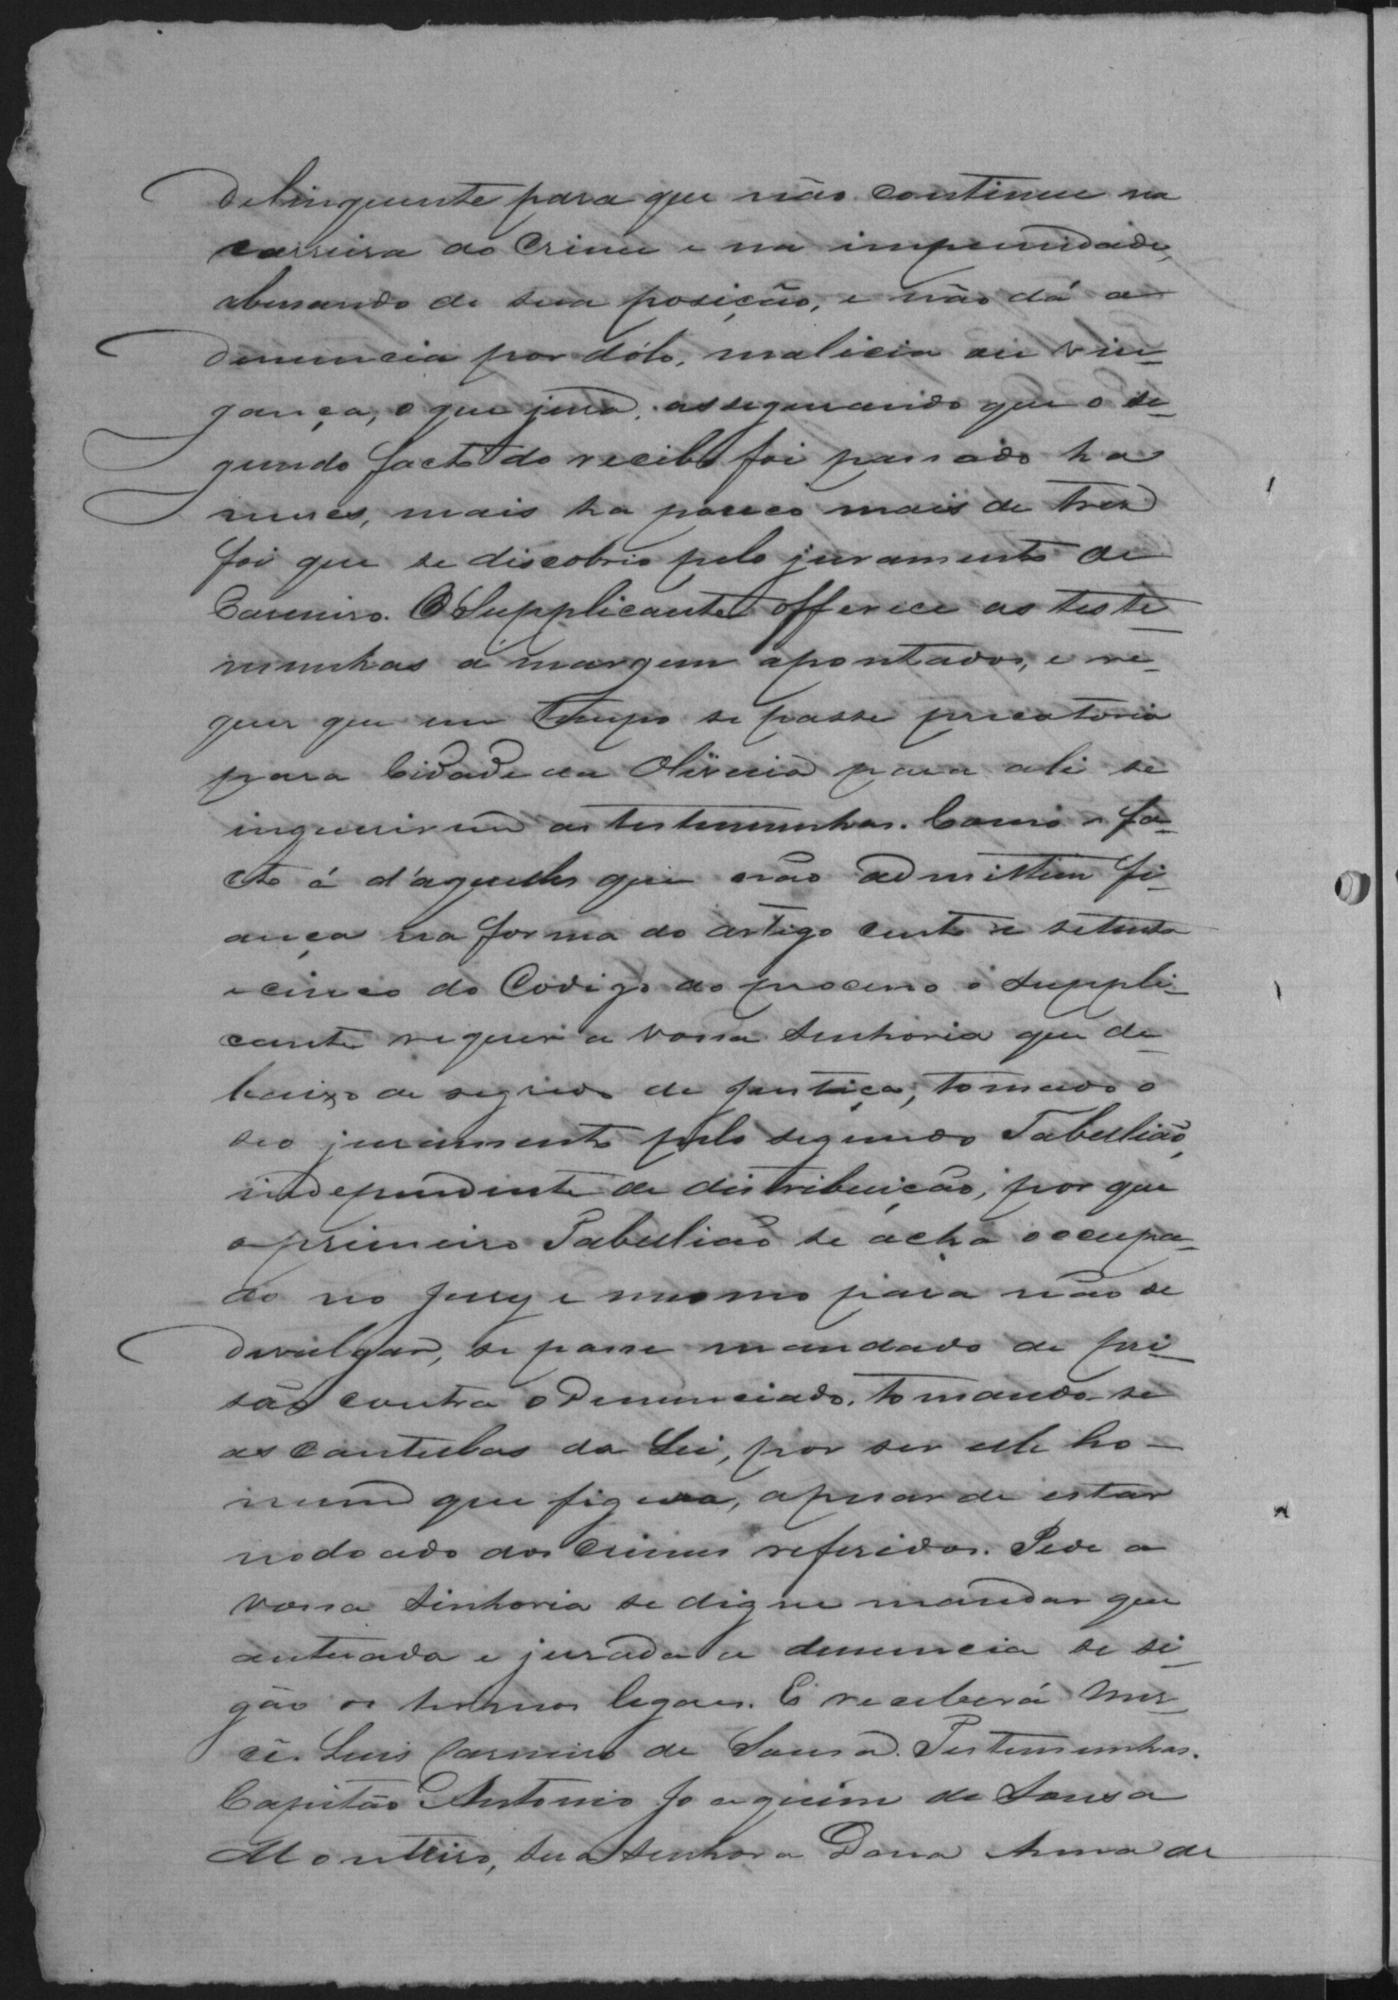 Delinquente para que não continue na
carreira do Crime e na impunidade,
abusando de sua posição, e não dá a
denuncia por dólo, malicia ou vin-
gança, o que jura, assegurando que o se-
gundo facto do recibo foi passado ha
mezes, mais ha pouco mais de tres
foi que se discobrio pelo juramento de
Carneiro. O Supplicante offerece as teste-
munhas á margem apontados, e re-
quer que em tempo se passe precatoria
para Cidade da Oliveira para ali se
inquerirem as testemunhas. Como o fa-
cto é d'aquelles que não admittem fi-
ança na forma do artigo cento e setenta
e cinco do Codigo do processo o suppli-
cante requer a vossa Senhoria que de-
baixo de segredo de justiça, tomado o
seo juramento pelo segundo Tabelião,
independente de distribuição, por que
o primeiro Tabelião se acha occupa-
do no Jury e mesmo para não se
divulgar, se passe mandado de pri-
são contra o Denunciado, tomando-se
as cautelas da Lei, por ser elle ho-
mem que figura, apesar de estar
nodoado dos Crimes referidos. Pede a
vossa Senhoria se digne mandar que
autuada e jurada a denuncia se si-
gão os termos legaes. E receberá Mer-
cê. Luis Carneiro de Sousa. Testemunhas.
Capitão Antonio Joaquim de Sousa
Monteiro, sua senhora Dona Anna de